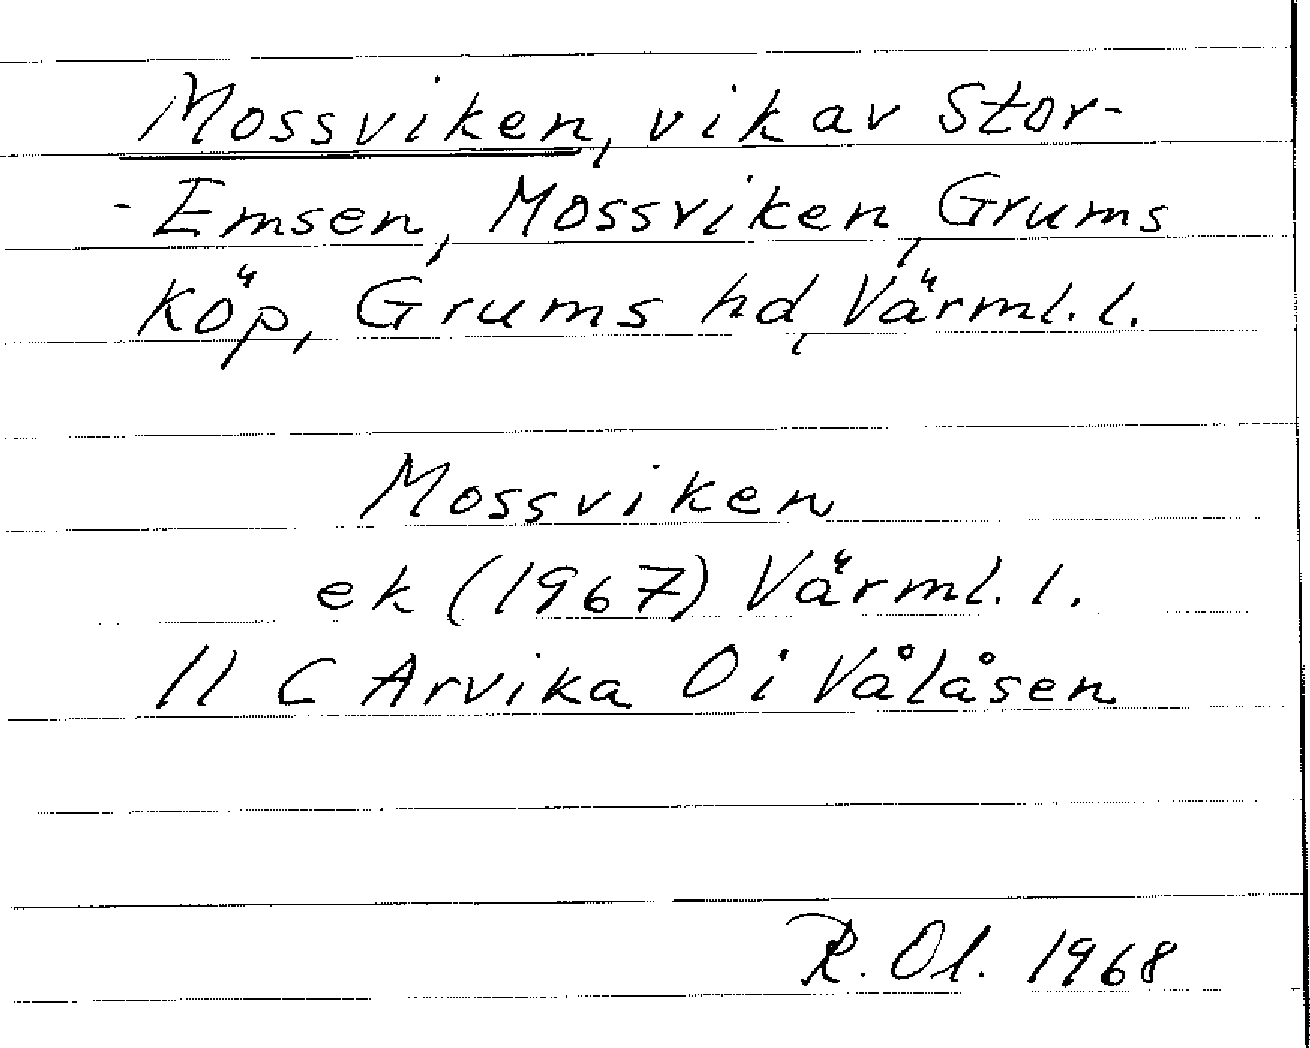 Mossviken, vik av Stor-
-Emsen, Mossviken, Grums
Köp, Grums hd, Värml. l.
Mossviken
ek (1967) Värml. l.
11 C Arvika Oi Vålåsen
R. Ol. 1968